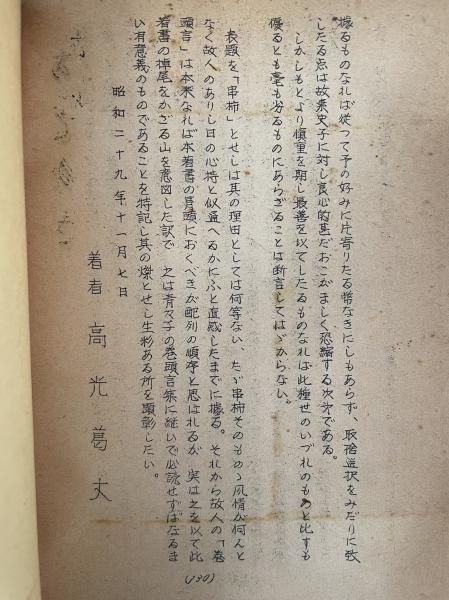 據るものなれば従つて予の好みに片寄りたる幣なきにしもあらず、取捨選択をみだりに致
したる点は故素史子に対し良心的甚だおこがましく恐縮する次第である。
しかしもとより慎重を期し最善を以てしたるものなれば此種せのいづれのものと比すも
優るとも毫も劣るものにあらざることは断言してはゞからない。
表題を「串柿」とせしは其の理由としては何等ない、たゞ串柿そのものゝ風情が何んと
なく故人のありし日の心持と似通へるかにふと直感したまでに據る。それから故人の「巻
頭言」は本来なれば本着書の冒頭におくべきが配列の順序と思はれるが、実は之を以て此
着書の掉尾をかざる山を意図した訳で之は青々子の巻頭言集に継いで必読せずばなるま
い有意義のものであることを特記し其の燦とせし生彩ある所を顕彰したい。
昭和二十九年十一月七日
着者 高光葛丈
(190)